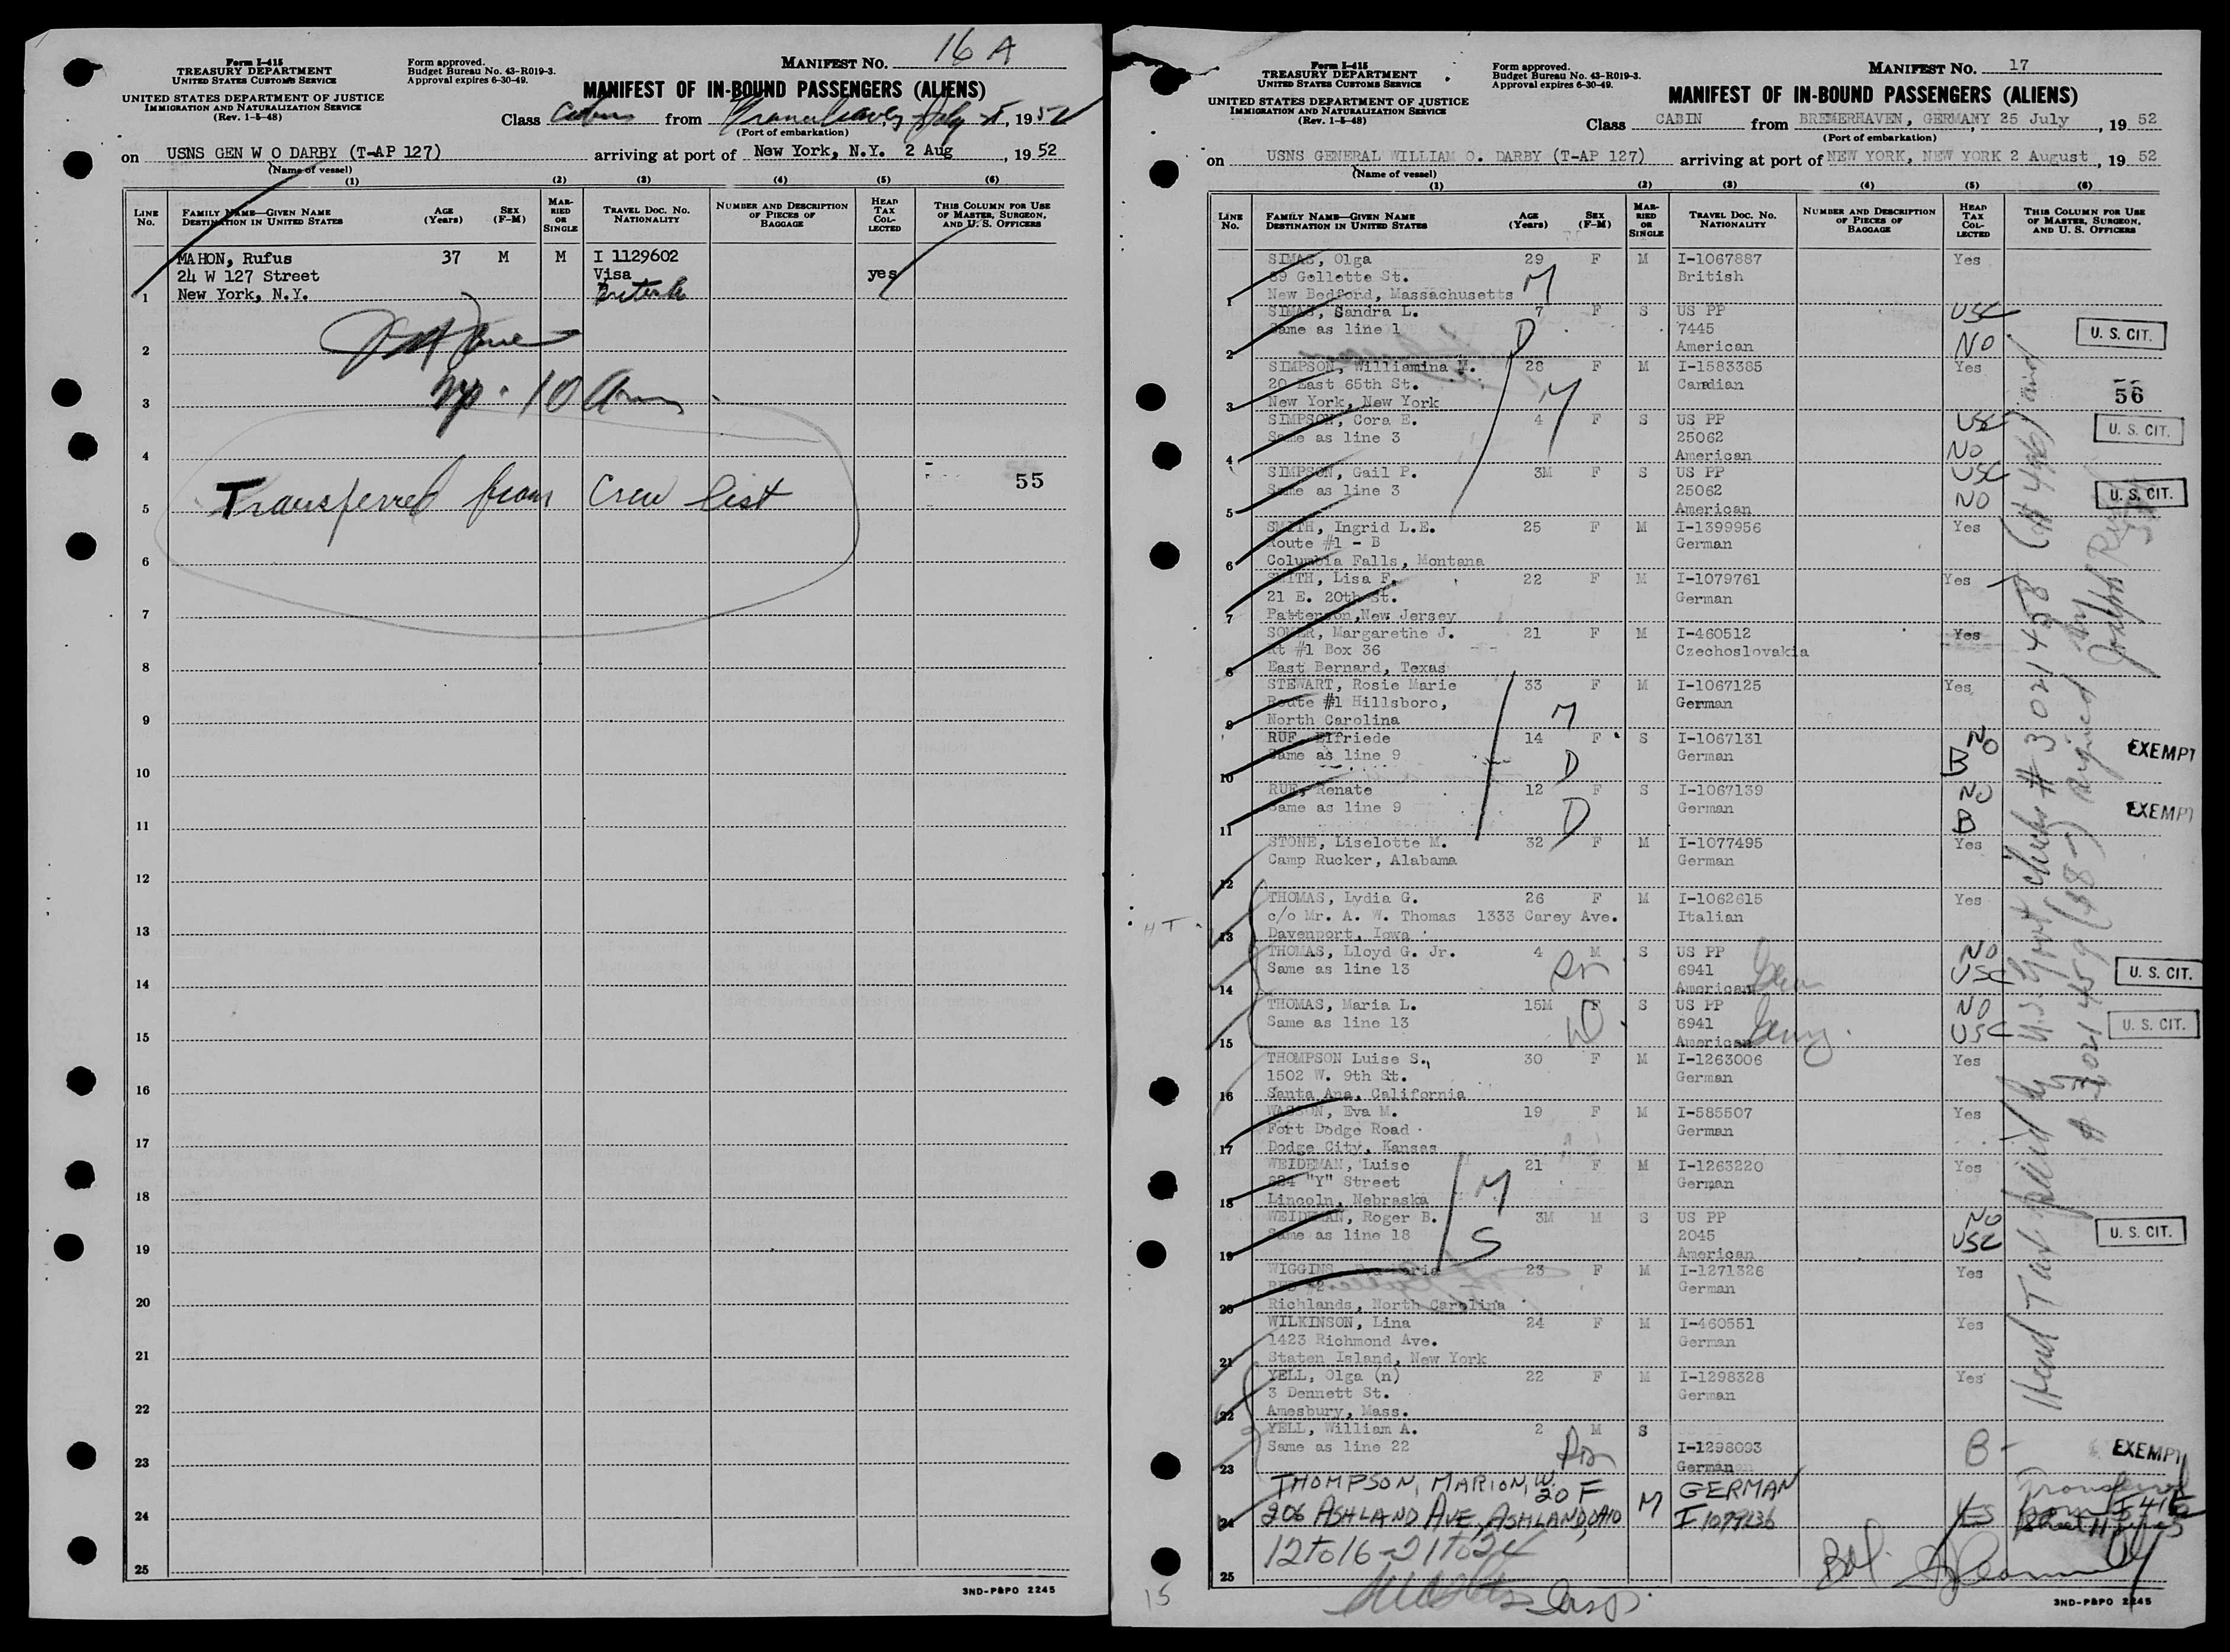 16 A
Form I-415
TREASURY DEPARTMENT
UNITED STATES CUSTOMS SERVICE
Form approved.
Budget Bureau No. 43-R019-3.
Approval expires 6-30-49.
MANIFEST No.
UNITED STATES DEPARTMENT OF JUSTICE
IMMIGRATION AND NATURALIZATION SERVICE
(Rev. 1-5-48)
MANIFEST OF IN-BOUND PASSENGERS (ALIENS)
Class from July , 1952
(Port of embarkation)
on USNS GEN W O DARBY (T-AP 127) arriving at port of New York, N.Y. 2 Aug , 1952
(Name of vessel)
(1) (2) (3) (4) (5) (6)
LINE No. FAMILY NAME—GIVEN NAME DESTINATION IN UNITED STATES AGE (Years) SEX (F-M) MARRIED OR SINGLE TRAVEL DOC. No. NATIONALITY NUMBER AND DESCRIPTION OF PIECES OF BAGGAGE HEAD TAX COLLECTED THIS COLUMN FOR USE OF MASTER, SURGEON, AND U. S. OFFICERS
MAHON, Rufus 37 M M I 1129602
24 W 127 Street Visa yes
1 New York, N.Y. British
2
10 Am
3
4
55
5 Transferred from Crew list
6
7
8
9
10
11
12
13
14
15
16
17
18
19
20
21
22
23
24
25
3ND-P&PO 2245
Form I-415
TREASURY DEPARTMENT
UNITED STATES CUSTOMS SERVICE
Form approved.
Budget Bureau No. 43-R019-3.
Approval expires 6-30-49.
MANIFEST No. 17
UNITED STATES DEPARTMENT OF JUSTICE
IMMIGRATION AND NATURALIZATION SERVICE
(Rev. 1-5-48)
MANIFEST OF IN-BOUND PASSENGERS (ALIENS)
Class CABIN from BREMERHAVEN, GERMANY 25 July , 1952
(Port of embarkation)
on USNS GENERAL WILLIAM O. DARBY (T-AP 127) arriving at port of NEW YORK, NEW YORK 2 August , 1952
(Name of vessel)
(1) (2) (3) (4) (5) (6)
LINE No. FAMILY NAME—GIVEN NAME DESTINATION IN UNITED STATES AGE (Years) SEX (F-M) MARRIED OR SINGLE TRAVEL DOC. No. NATIONALITY NUMBER AND DESCRIPTION OF PIECES OF BAGGAGE HEAD TAX COLLECTED THIS COLUMN FOR USE OF MASTER, SURGEON, AND U. S. OFFICERS
SIMAS, Olga 29 F M I-1067887 Yes
89 Gollette St. M British
1 New Bedford, Massachusetts
SIMAS, Sandra L. 7 F S US PP USC
Same as line 1 D 7445 U. S. CIT.
2 American NO
SIMPSON, Williamina M. 28 F M I-1583385 Yes
20 East 65th St. M Candian 56
3 New York, New York
SIMPSON, Cora E. 4 F S US PP USC
Same as line 3 25062 U. S. CIT.
4 American NO
SIMPSON, Gail P. 3M F S US PP USC
Same as line 3 25062 NO U. S. CIT.
5 American
SMITH, Ingrid L.E. 25 F M I-1399956 Yes
Route #1 - B German
6 Columbia Falls, Montana
SMITH, Lisa F. 22 F M I-1079761 Yes
21 E. 20th St. German
7 Patterson,New Jersey
SOMER, Margarethe J. 21 F M I-460512 Yes
Rt #1 Box 36 Czechoslovakia
8 East Bernard, Texas
STEWART, Rosie Marie 33 F M I-1067125 Yes
Route #1 Hillsboro, M German
9 North Carolina
RUF, Elfriede 14 F S I-1067131 NO
Same as line 9 D German B EXEMPT
10
RUF, Renate 12 F S I-1067139 NO
Same as line 9 D German B EXEMPT
11
STONE, Liselotte M. 32 F M I-1077495 Yes
Camp Rucker, Alabama German
12
THOMAS, Lydia G. 26 F M I-1062615 Yes
c/o Mr. A. W. Thomas 1333 Carey Ave. Italian
13 Davenport, Iowa
THOMAS, Lloyd G. Jr. 4 M S US PP NO
Same as line 13 6941 USC U. S. CIT.
14 American
THOMAS, Maria L. 15M F S US PP NO
Same as line 13 D 6941 USC U. S. CIT.
15 American
THOMPSON Luise S., 30 F M I-1263006 Yes
1502 W. 9th St. German
16 Santa Ana, California
WASSON, Eva M. 19 F M I-585507 Yes
Fort Dodge Road German
17 Dodge City, Kansas
WEIDEMAN, Luise 21 F M I-1263220 Yes
"Y" Street M German
18 Lincoln, Nebraska
WEIDEMAN, Roger B. 3M M S US PP NO
Same as line 18 S 2045 USC U. S. CIT.
19 American
WIGGINS, Maria 23 F M I-1271326 Yes
RFD #2 German
20 Richlands, North Carolina
WILKINSON, Lina 24 F M I-460551 Yes
1423 Richmond Ave. German
21 Staten Island, New York
YELL, Olga (n) 22 F M I-1298328 Yes
3 Dennett St. German
22 Amesbury, Mass.
YELL, William A. 2 M S
Same as line 22 I-1298093 B- EXEMPT
23 German
THOMPSON, MARION, W. 20 F M GERMAN Transferred
24 206 ASHLAND AVE, ASHLAND, OHIO I 1079236 YES from I 415
12 to 16 - 21 to 24
25
Head Tax paid by U.S. Govt check # 3021458 and
# 3021459 signed by Joseph
15
3ND-P&PO 2245